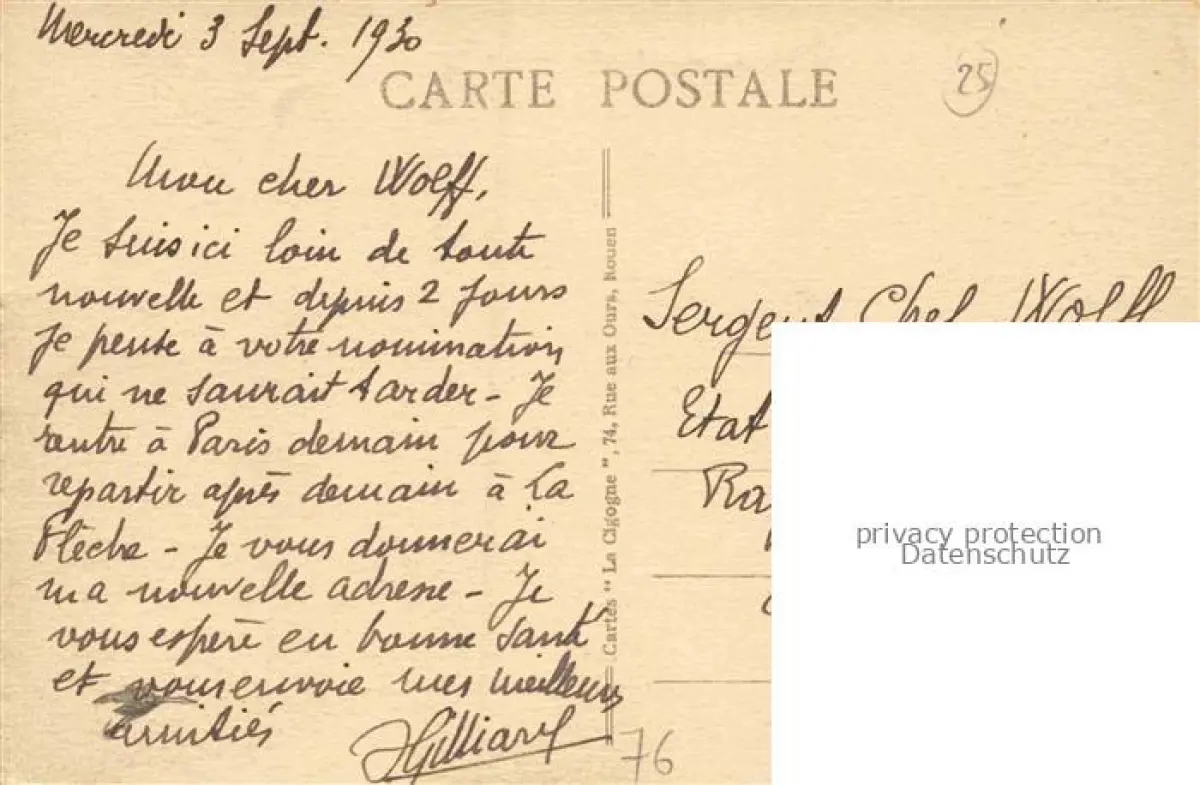 Mercredi 3 Sept. 1930
CARTE POSTALE
25
Mon cher Wolff,
Je suis ici loin de toute
nouvelle et depuis 2 jours
je pense à votre nomination
qui ne saurait tarder - Je
rentre à Paris demain pour
repartir après demain à La
Flèche - Je vous donnerai
ma nouvelle adresse - Je
vous espère en bonne santé
et vous envoie mes meilleures
amitiés
Cartes "La Cigogne", 74, Rue aux Ours, Rouen
Sergent Chef Wolff
Etat
76
privacy protection
Datenschutz